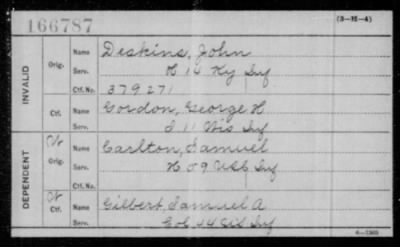 166787
(3-H-4)
INVALID
Orig.
Name Deskins, John
Serv. K 14 Ky Inf
Ctf. No. 379271
Ctf.
Name Gordon, George H
Serv. I 11 Wis Inf
DEPENDENT
Orig.
Name Carlton, Samuel
Serv. K 09 USC Inf
Ctf.
Name Gilbert, Samuel A
Serv. Col 44 Inf